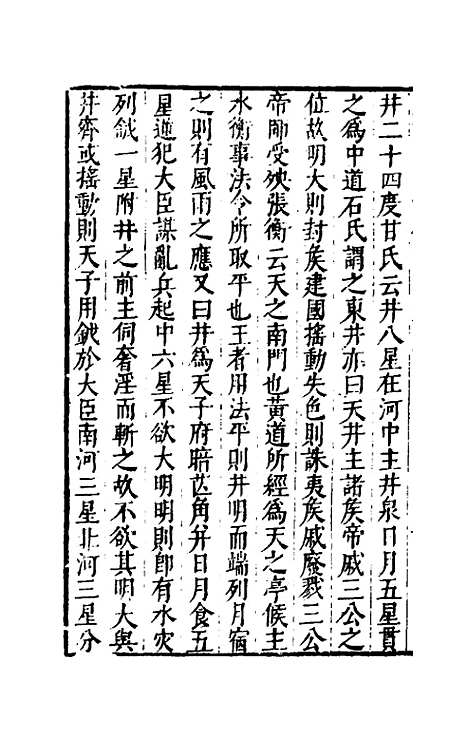 井二十四度甘氏云井八星在河中主井泉日月五星貫
之爲中道石氏謂之東井亦曰天井主諸矦帝戚三公之
位故明大則封矦建國搖動失色則誅夷矦戚廢戮三公
帝師受殃張衡云天之南門也黄道所經爲天之亭候主
水衡事法令所取平也王者用法平則井明而端列月宿
之則有風雨之應又曰井爲天子府暗芒角并日月食五
星逆犯大臣謀亂兵起中六星不欲大明明則卽有水灾
列鉞一星附井之前主伺奢淫而斬之故不欲其明大與
井齊或搖動則天子用鉞於大臣南河三星北河三星分